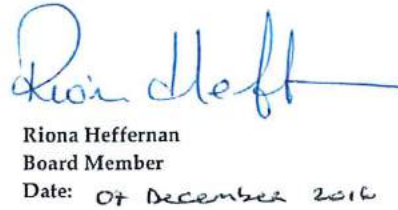 Riona Heffernan
Board Member
Date: 07 December 2016